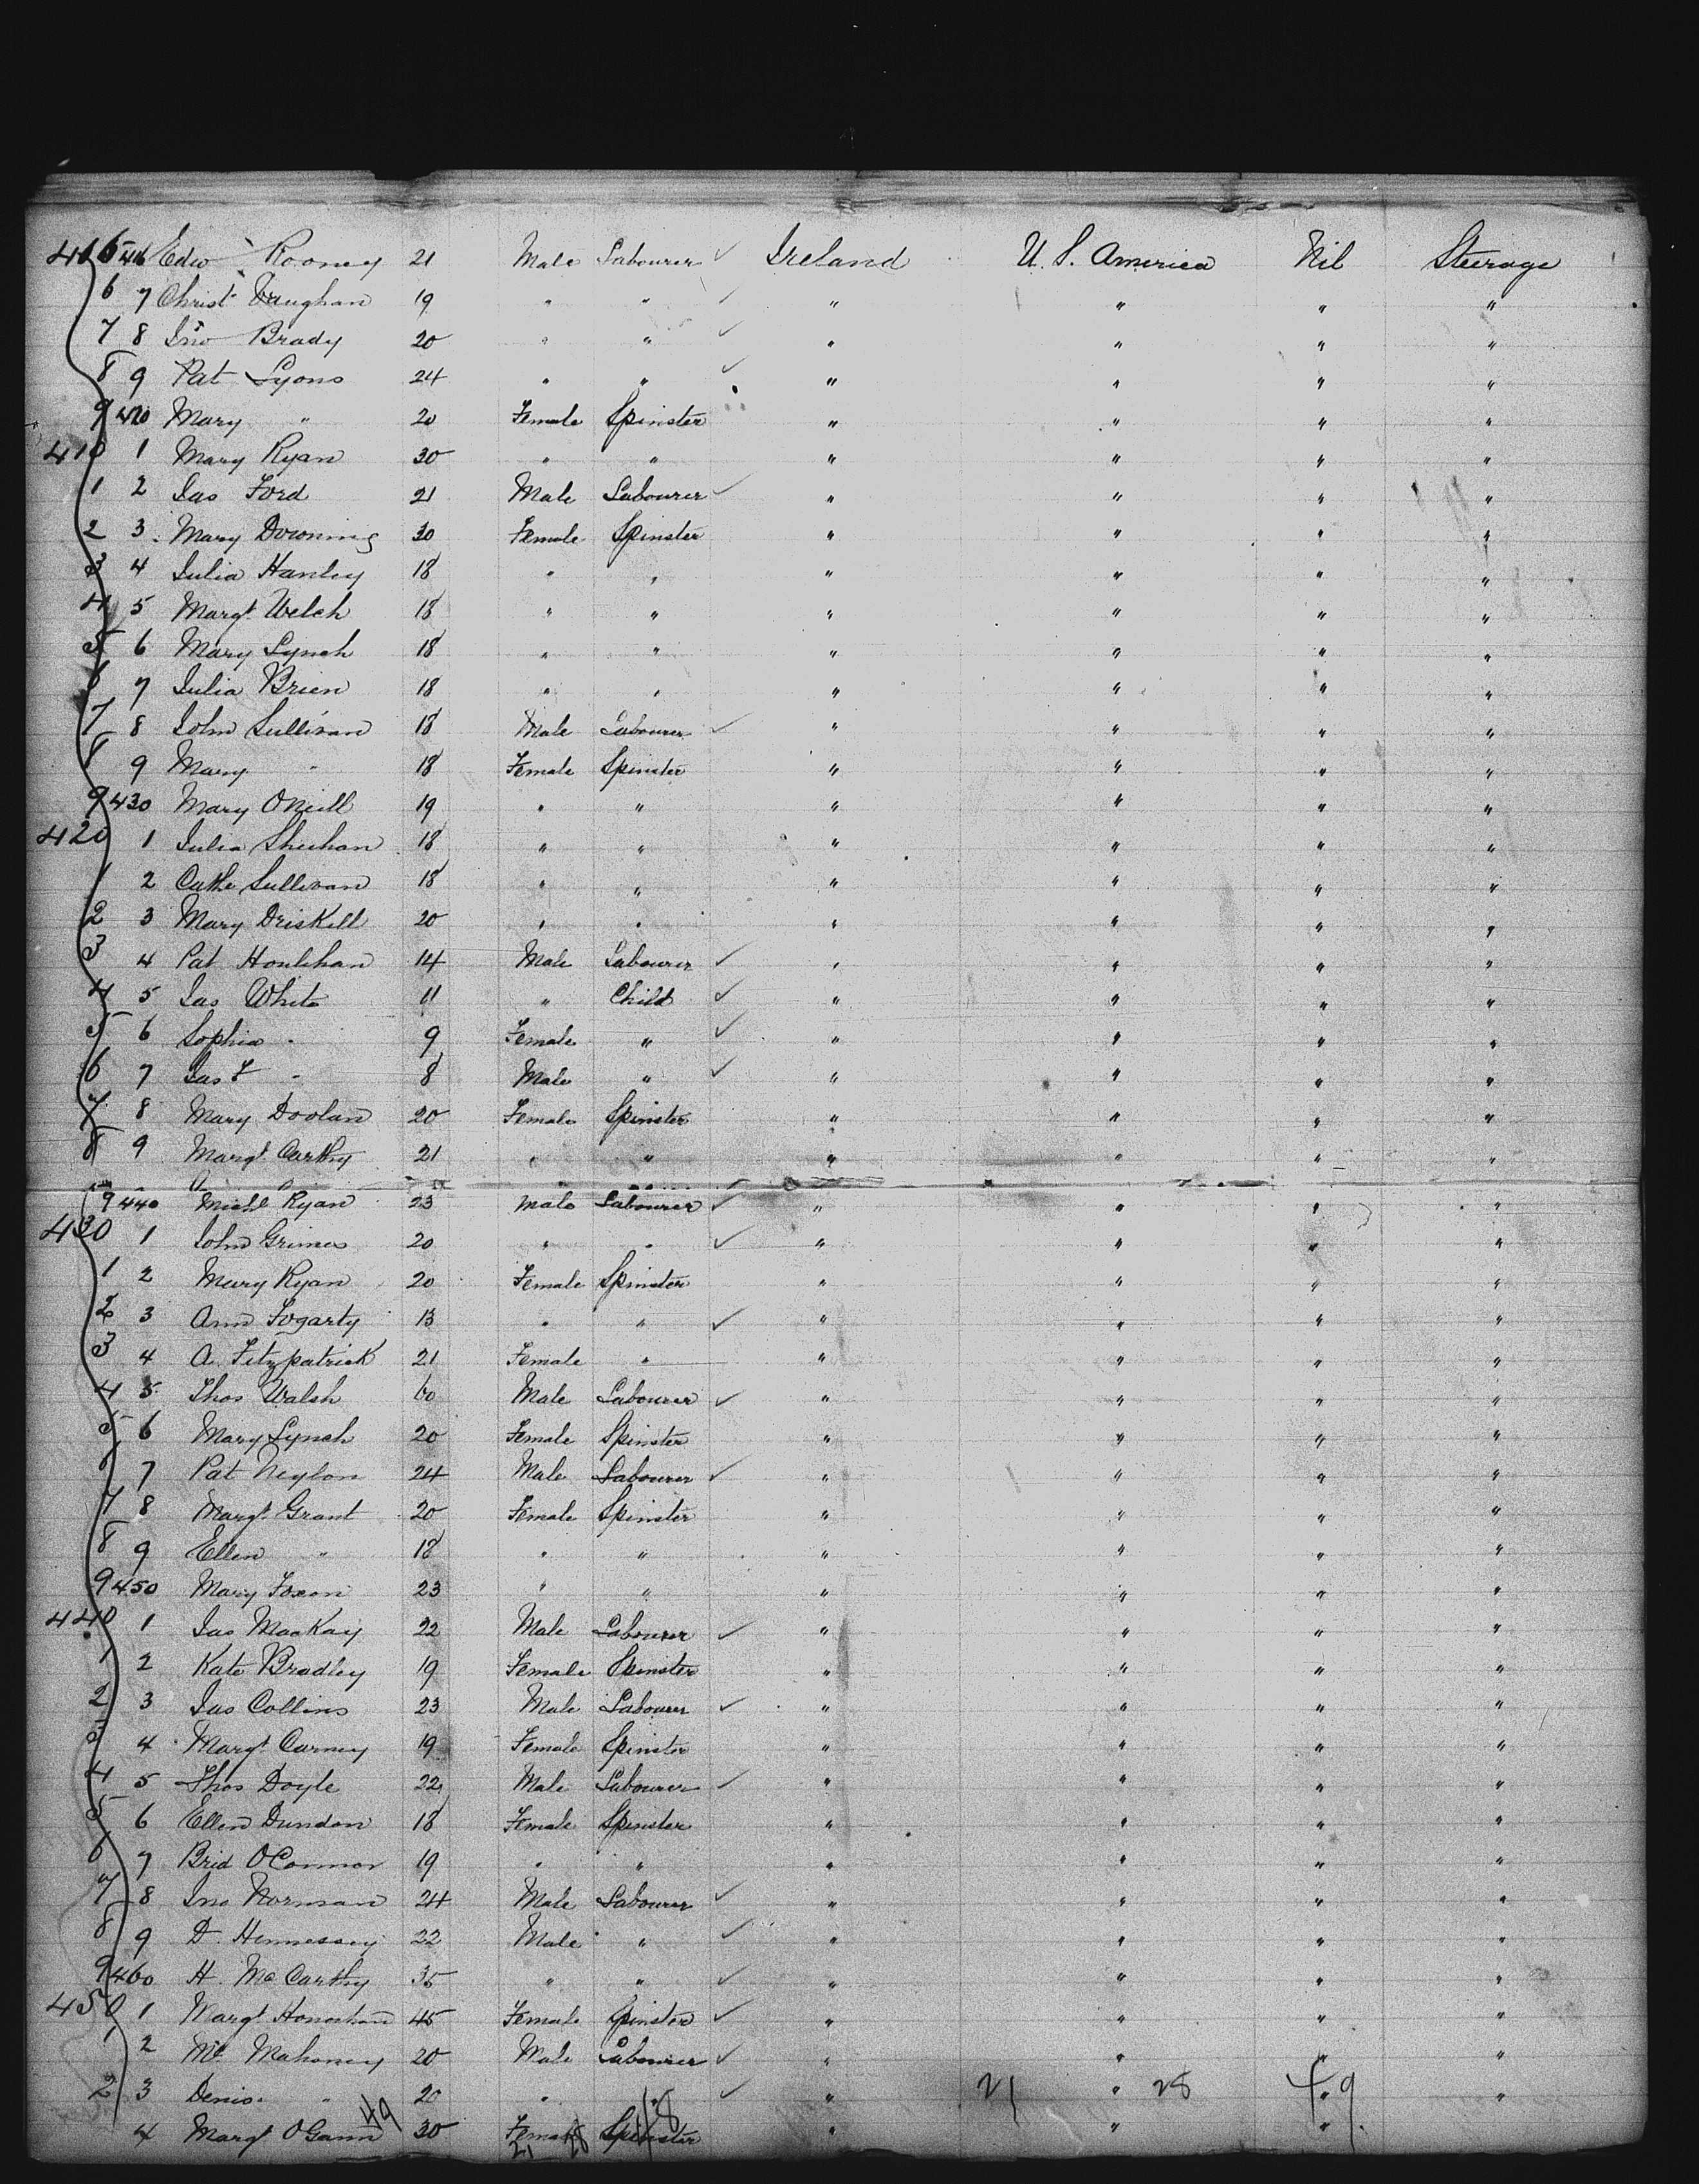 405 416 Edw Rooney 21 Male Labourer ✓ Ireland U. S. America Nil Steerage
6 7 Christ Vaughan 19 " " ✓ " " " "
7 8 Jno Brady 20 " " ✓ " " " "
8 9 Pat Lyons 24 " " ✓ " " " "
9 420 Mary " 20 Female Spinster " " " "
410 1 Mary Ryan 30 " " " " " "
1 2 Jas Ford 21 Male Labourer ✓ " " " "
2 3 Mary Downing 30 Female Spinster " " " "
3 4 Julia Hanley 18 " " " " " "
4 5 Margt. Welch 18 " " " " " "
5 6 Mary Lynch 18 " " " " " "
6 7 Julia Brien 18 " " " " " "
7 8 John Sullivan 18 Male Labourer ✓ " " " "
8 9 Mary " 18 Female Spinster " " " "
9 430 Mary ONeill 19 " " " " " "
420 1 Julia Sheehan 18 " " " " " "
1 2 Cathe Sullivan 18 " " " " " "
2 3 Mary Driskill 20 " " " " " "
3 4 Pat Houlihan 14 Male Labourer ✓ " " " "
4 5 Jas White 11 " Child ✓ " " " "
5 6 Sophia " 9 Female " ✓ " " " "
6 7 Jas F " 8 Male " ✓ " " " "
7 8 Mary Doolan 20 Female Spinster " " " "
8 9 Margt. Carthy 21 " " " " " "
9 440 Michl Ryan 23 Male Labourer ✓ " " " "
430 1 John Grimes 20 " " ✓ " " " "
1 2 Mary Ryan 20 Female Spinster " " " "
2 3 Ann Fogarty 13 " " ✓ " " " "
3 4 A. Fitzpatrick 21 Female " " " " "
4 5 Thos Walsh 60 Male Labourer ✓ " " " "
5 6 Mary Lynch 20 Female Spinster " " " "
6 7 Pat Neylon 24 Male Labourer ✓ " " " "
7 8 Margt. Grant 20 Female Spinster " " " "
8 9 Ellen " 18 " " " " " "
9 450 Mary Foxon 23 " " " " " "
440 1 Jas MacKay 22 Male Labourer ✓ " " " "
1 2 Kate Bradley 19 Female Spinster " " " "
2 3 Jas Collins 23 Male Labourer ✓ " " " "
3 4 Margt. Carney 19 Female Spinster " " " "
4 5 Thos Doyle 22 Male Labourer ✓ " " " "
5 6 Ellen Dundon 18 Female Spinster " " " "
6 7 Brid OConnor 19 " " " " " "
7 8 Jno Norman 24 Male Labourer ✓ " " " "
8 9 D. Hennessey 22 Male " ✓ " " " "
9 460 H. McCarthy 35 " " ✓ " " " "
450 1 Margt 45 Female Spinster ✓ " " " "
1 2 Mahoney 20 Male Labourer ✓ " " " "
2 3 Denis " 20 " " ✓ " 21 " 28 49 "
4 Margt 49 30 Female Spinster " " "
21 28